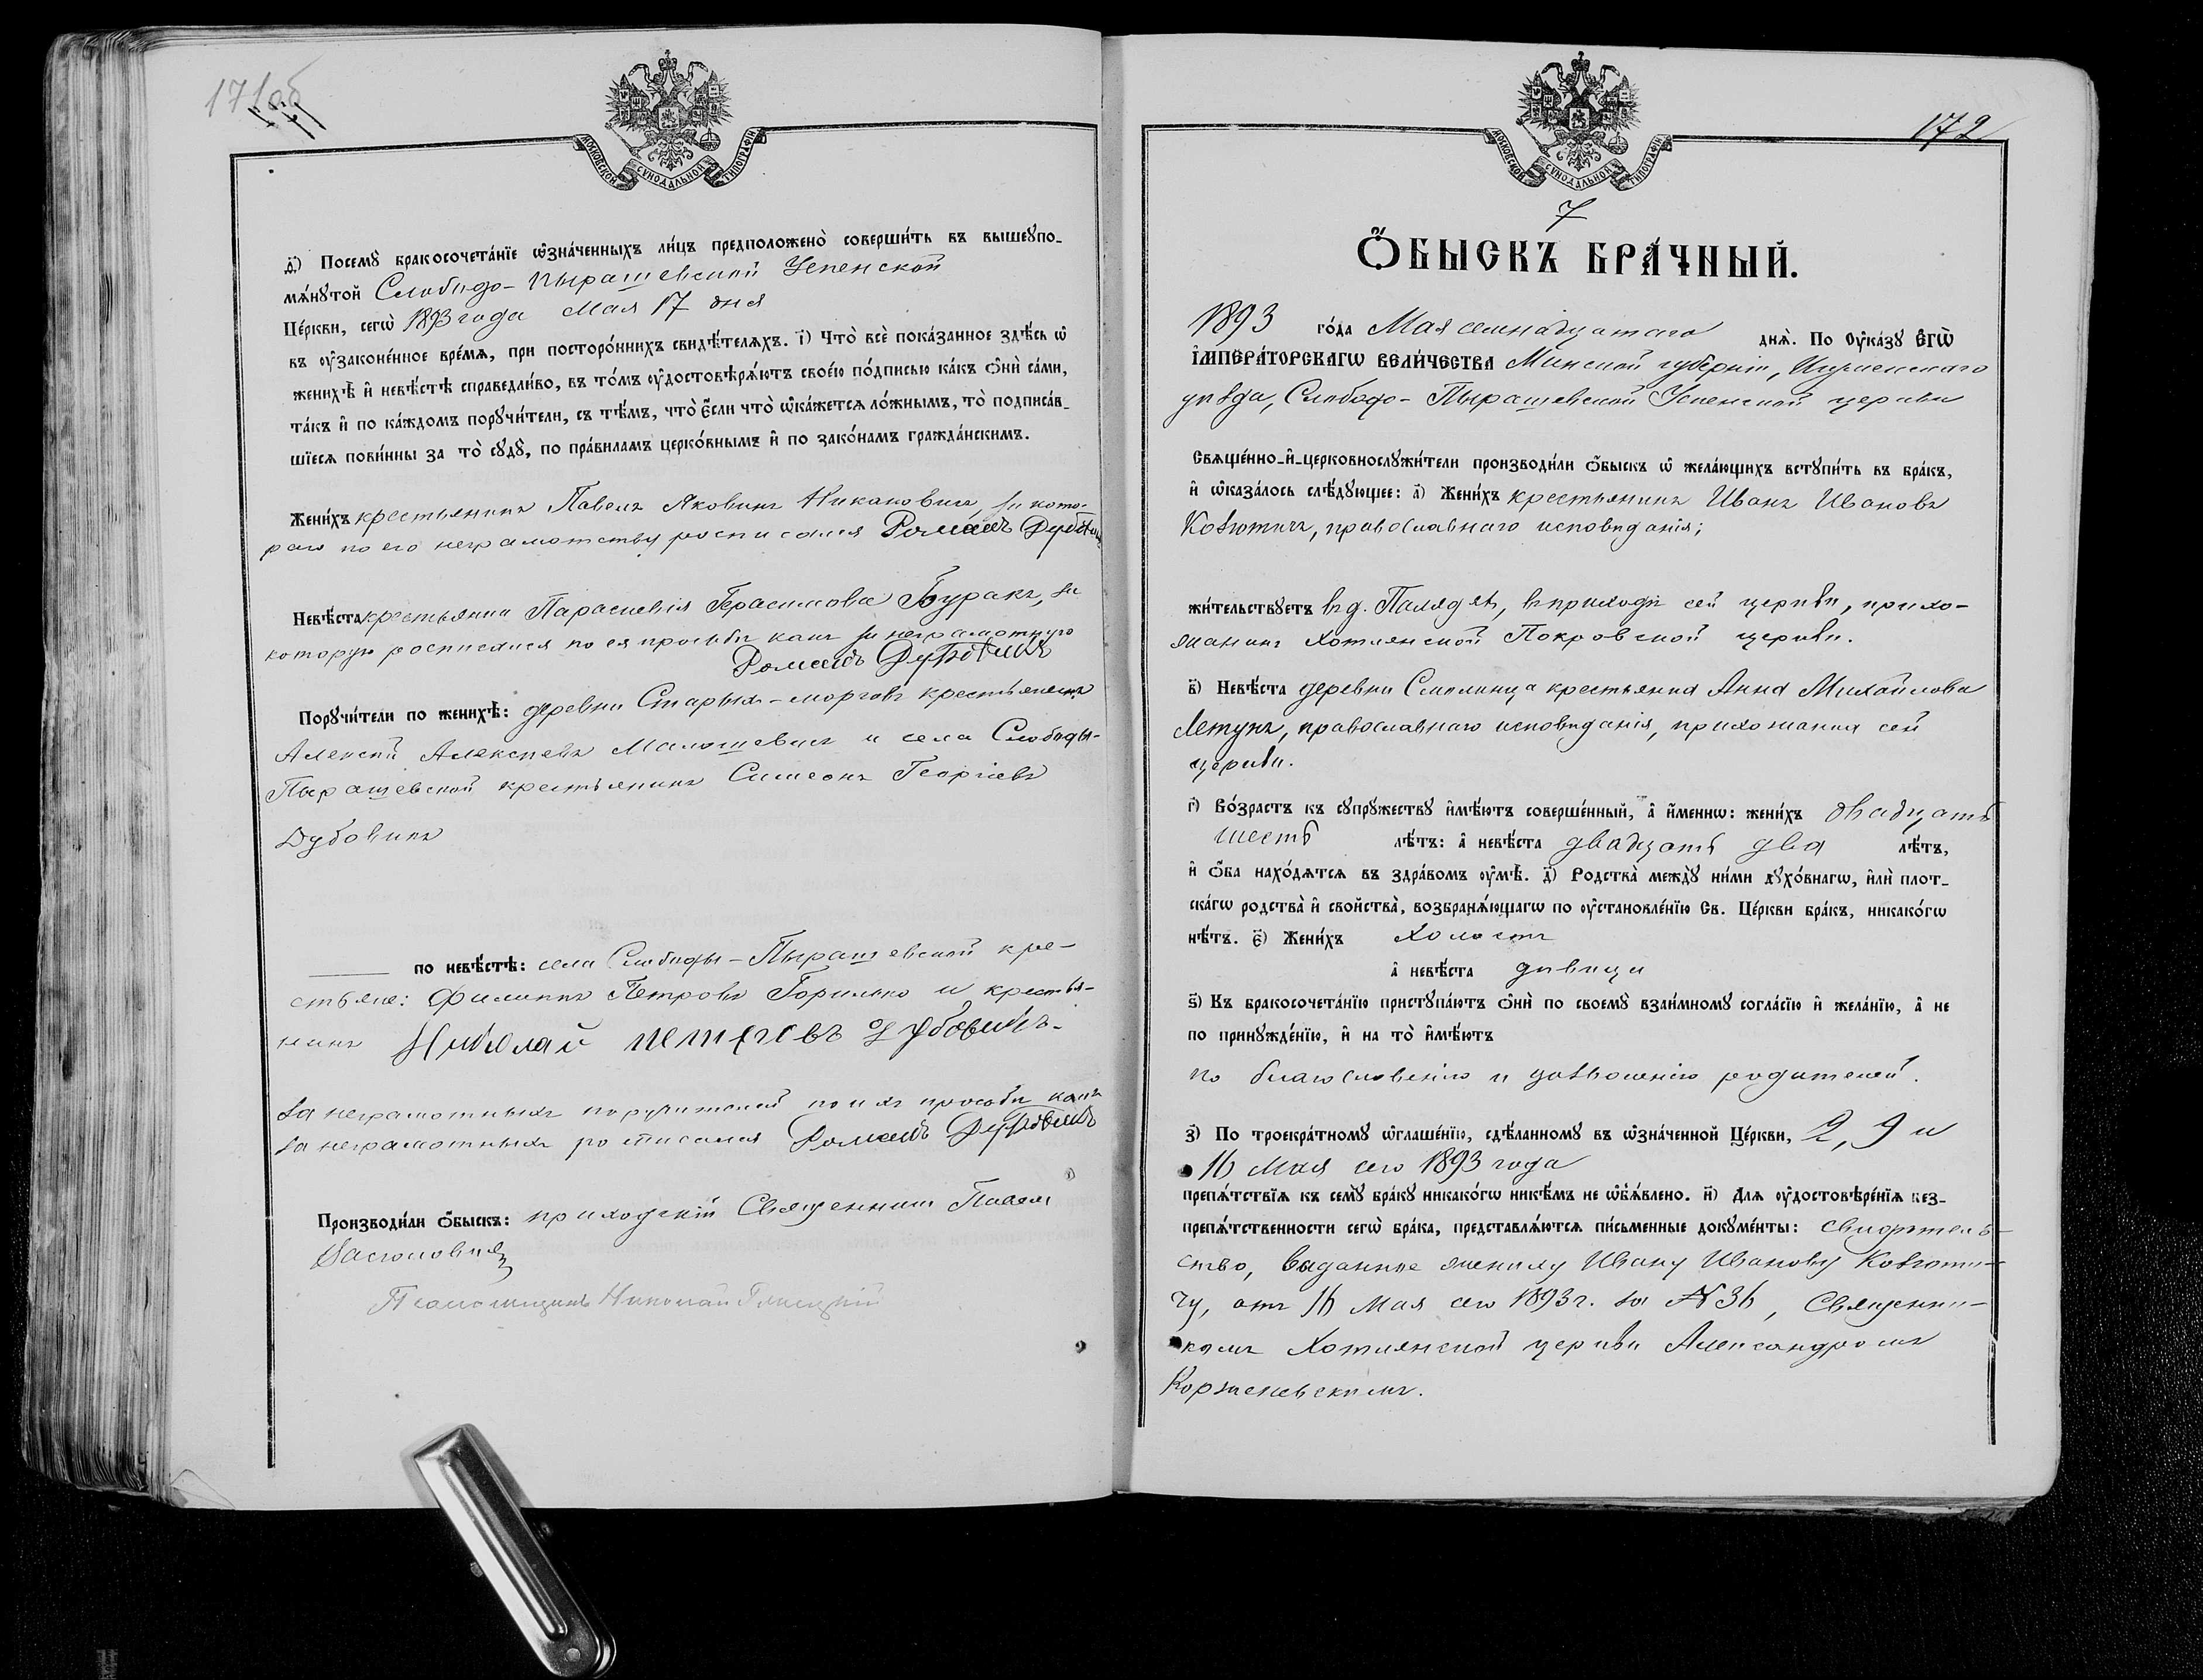 171об
МОСКОВСКОЙ СѴНОДАЛЬНОЙ ТИПОГРАФІИ
ѳ҃) Посемꙋ̀ бракосочета́нїе ѡ҆зна́ченныхъ ли́цъ предположено̀ соверши́ть въ вышеꙋпо-
мѧ́нꙋтой Слободо-Пырашевской Успенской
Це́ркви, сегѡ̀ 1893 года Мая 17 дня
въ ᲂу҆законе́нное вре́мѧ, при посторо́ннихъ свидѣ́телѧхъ. і҃) Что̀ всѐ пока́занное здѣ́сь ѡ҆
женихѣ̀ и҆ невѣ́стѣ справедли́во, въ то́мъ ᲂу҆достовѣрѧ́ютъ свое́ю по́дписью ка́къ ѻ҆нѝ са́ми,
та́къ и҆ по ка́ждомъ порꙋчи́тели, съ тѣ́мъ, что̀ є҆́сли что̀ ѡ҆ка́жетсѧ ло́жнымъ, то̀ подписа́в-
шїесѧ пови́нны за то̀ сꙋдꙋ̀, по пра́вилamъ церко́внымъ и҆ по зако́намъ гражда́нскимъ.
Жени́хъ крестьянинъ Павелъ Яковинъ Никановичъ, за кото-
раго по его неграмотству росписался Романъ
Невѣ́ста крестьянка Параскевія Герасимова Буракъ, за
которую росписался по ея просьбѣ какъ за неграмотную
Романъ Дубовикъ
Порꙋчи́тели по женихѣ̀: деревни Старыхъ-морговъ крестьянинъ
Алексѣй Алексѣевъ Малашевичъ и села Слободы-
Пырашевской крестьянинъ Симеонъ Георгіевъ
Дубовикъ
по невѣ́стѣ: села Слободы-Пырашевской кре-
стьяне: Филиппъ Петровъ Горилко и крестья-
нинъ Николай Дубовикъ
за неграмотныхъ поручителей по ихъ просьбѣ какъ
за неграмотныхъ росписался Романъ Дубовикъ
Производи́ли ѻ҆́быскъ: приходскій Священникъ Павелъ
Псаломщикъ Николай
172
МОСКОВСКОЙ СѴНОДАЛЬНОЙ ТИПОГРАФІИ
7
Ѻ҆́БЫСКЪ БРА́ЧНЫЙ.
1893 го́да Мая семнадцатаго днѧ̀. По Оу҆ка́зꙋ Є҆гѡ̀
І҆МПЕРА́ТОРСКАГѠ ВЕЛИ́ЧЕСТВА Минской губерніи, Игуменскаго
уѣзда, Слободо-Пырашевской Успенской церкви
Свѧще́нно-и҆-церковнослꙋжи́тели производи́ли ѻ҆́быскъ ѡ҆ жела́ющихъ встꙋпи́ть въ бра́къ,
и҆ ѡ҆каза́лось слѣ́дꙋющее: а҃) Жени́хъ крестьянинъ Иванъ Ивановъ
Козютичъ, православнаго исповѣданія;
жи́тельствꙋетъ въ д. Палядзѣ, въ приходѣ сей церкви, прихо-
жанинъ Хотлянской Покровской церкви.
в҃) Невѣ́ста деревни Смолинца крестьянка Анна Михайлова
Летунъ, православнаго исповѣданія, прихожанка сей
церкви.
г҃) Во́зрастъ къ сꙋпрꙋ́жествꙋ и҆мѣ́ютъ соверше́нный, а҆ и҆́меннѡ: жени́хъ двадцать
шесть лѣ́тъ: а҆ невѣ́ста двадцать два лѣ́тъ,
и҆ ѻ҆́ба нахо́дѧтсѧ въ здра́вомъ ᲂу҆мѣ̀. д҃) Родства̀ междꙋ̀ ни́ми дꙋхо́внагѡ, и҆лѝ плот-
ска́гѡ родства̀ и҆ свойства̀, возбранѧ́ющагѡ по ᲂу҆становле́нїю Св. Це́ркви бра́къ, никако́гѡ
нѣ́тъ. є҃) Жени́хъ холостъ
а҆ невѣ́ста дѣвица
ѕ҃) Къ бракосочета́нїю пристꙋпа́ютъ ѻ҆нѝ по своемꙋ̀ взаи́мномꙋ согла́сїю и҆ жела́нїю, а҆ не
по принꙋжде́нїю, и҆ на то̀ и҆мѣ́ютъ
по благословенію и дозволенію родителей.
з҃) По троекра́тномꙋ ѡ҆глаше́нїю, сдѣ́ланномꙋ въ ѡ҆зна́ченной Це́ркви, 2, 9 и
16 Мая сего 1893 года
препѧ́тствїѧ къ семꙋ̀ бра́кꙋ никако́гѡ никѣ́мъ не ѡ҆б̾ѧ́влено. и҃) Длѧ ᲂу҆достовѣре́нїѧ без-
препѧ́тственности сегѡ̀ бра́ка, представлѧ́ютсѧ пи́сьменные докꙋме́нты: свидѣтель-
ство, выданное жениху Ивану Иванову Козюти-
чу, отъ 16 Мая сего 1893 г. за № 36, Священни-
комъ Хотлянской церкви Александромъ
Корженевскимъ.